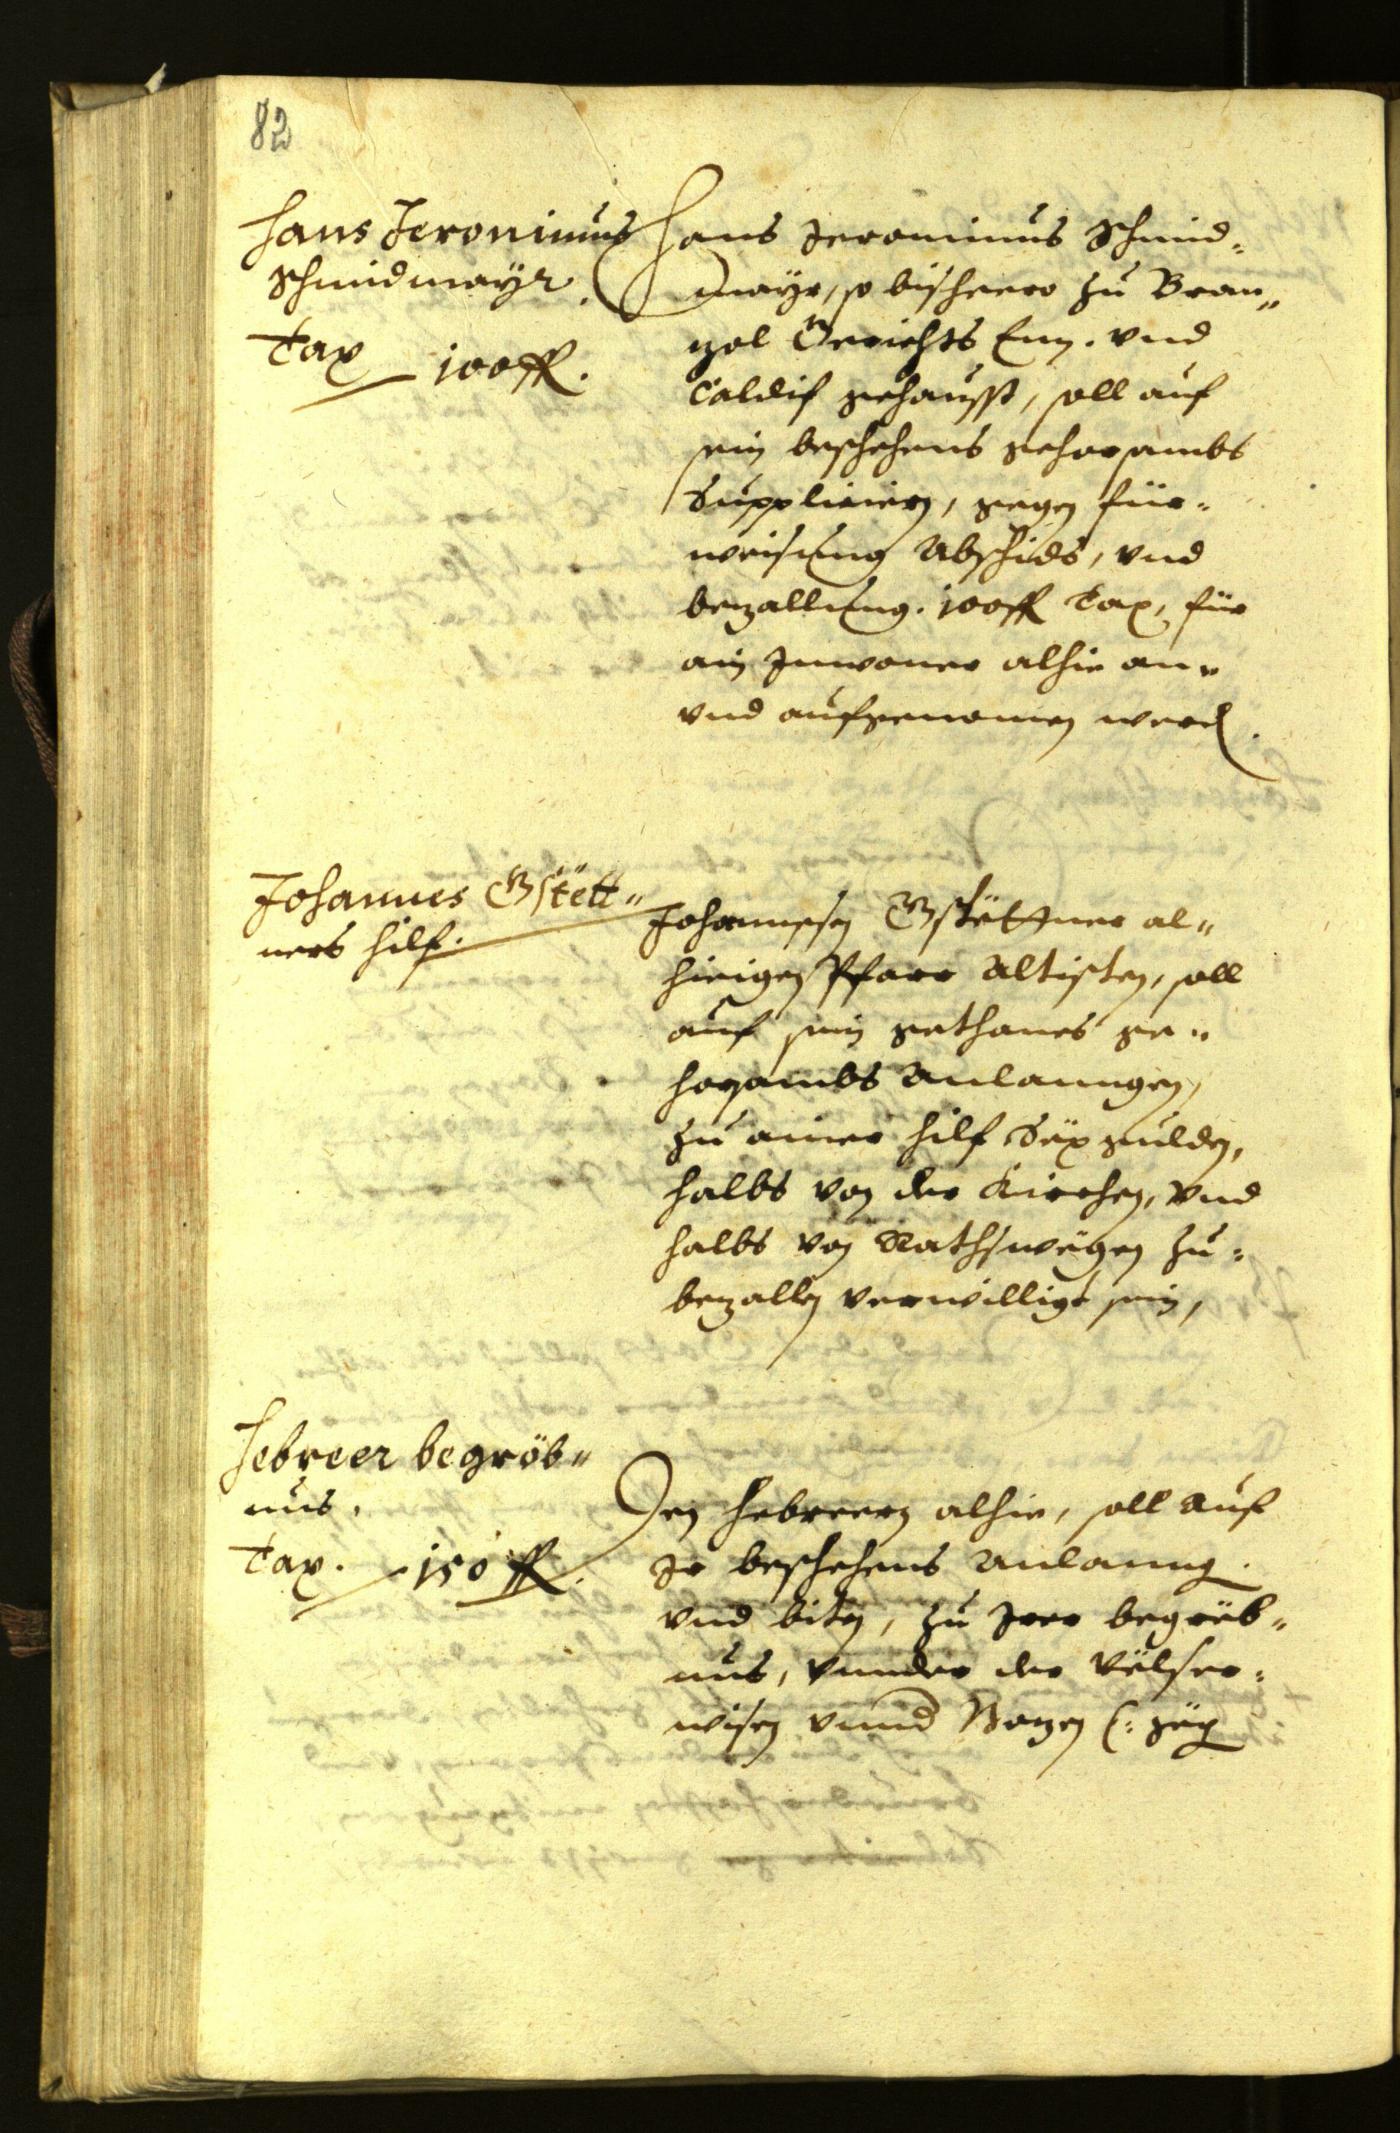 82
Hans Jeronimus
Schmidmayr.
Tax 100 fl.
Hans Jeronimus Schmid=
mayr, so bisheero zu Bran=
zol Gerichts Enn. vnd
Caldif gehausst, soll auf
sein beschehens gehorsambs
Suppliciern, gegen für=
weisung Abschids, vnd
bezallung. 100 fl Tax, für
ain Inwoner alhie an=
vnd aufgenomen werd.
Johannes Gstett=
ners hilf.
Johannesen Gstettner al=
hieigen Pfarr Altisten, soll
auf sein gethanes ge=
horsambs Anlanngen,
zu ainer hilf Sëx gulden,
halbs von der Kirchen, vnd
halbs von Rathswëgen zu=
bezallen verwilligt sein,
Hebreer begröb=
nus.
Tax. 150 fl.
Den Hebreern alhie, soll auf
Ir beschehens Anlanng.
vnd biten, zu Irer begrëb=
nus, vnnder der Vëlser=
wisen vnnd Bozen (: zëx